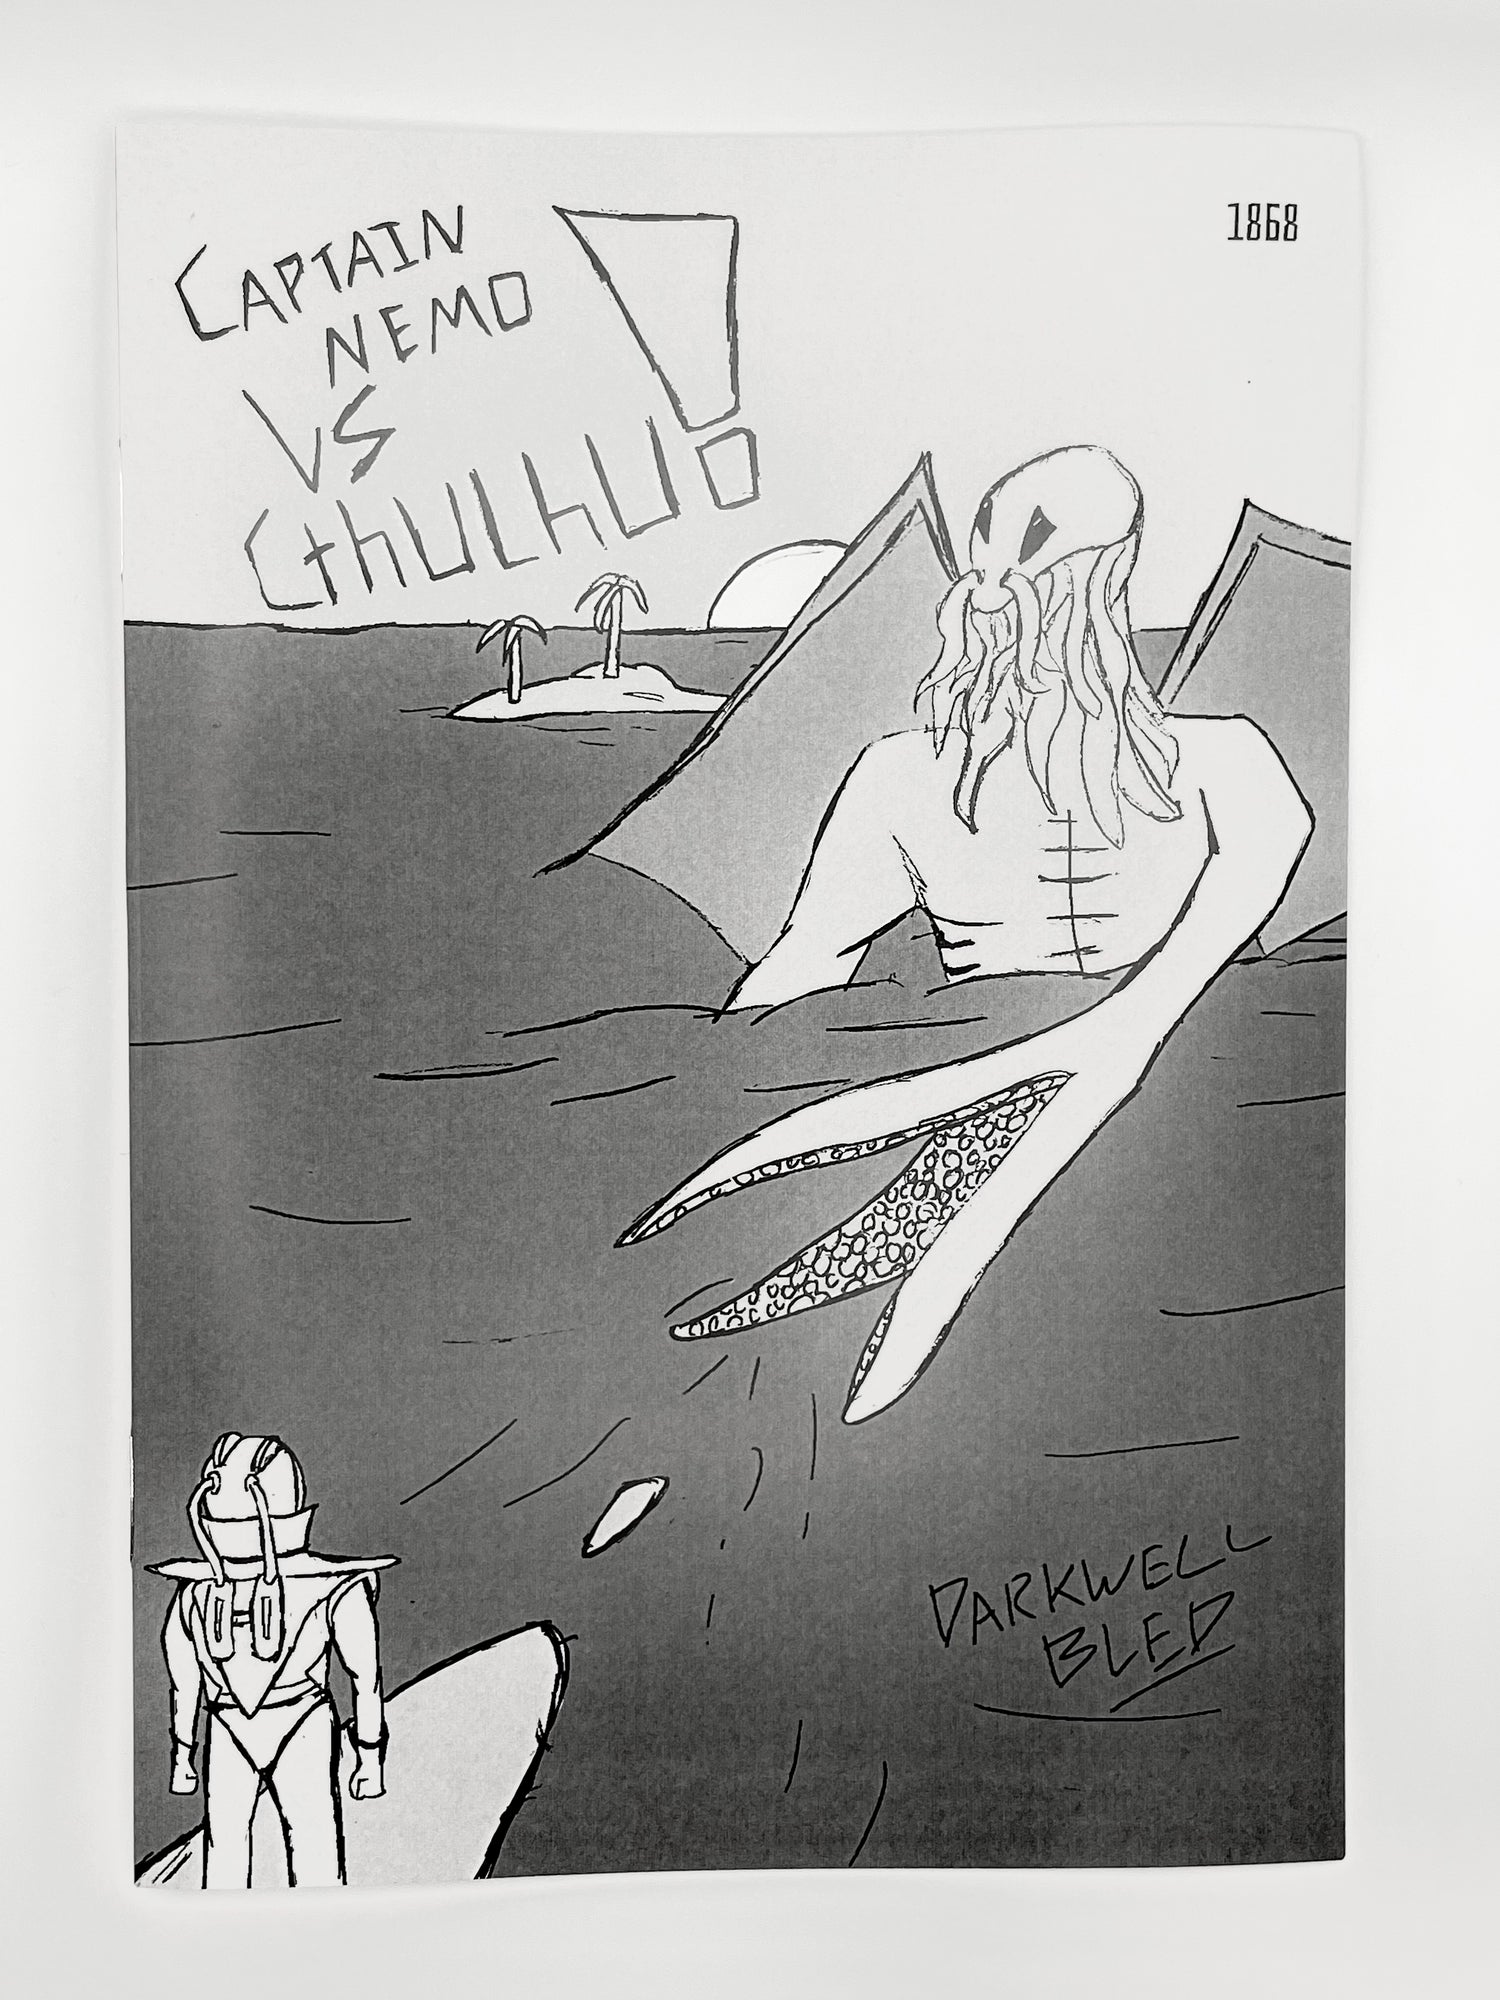 CAPTAIN
NEMO
VS
CthULhU!
1868
DARKWELL
BLED